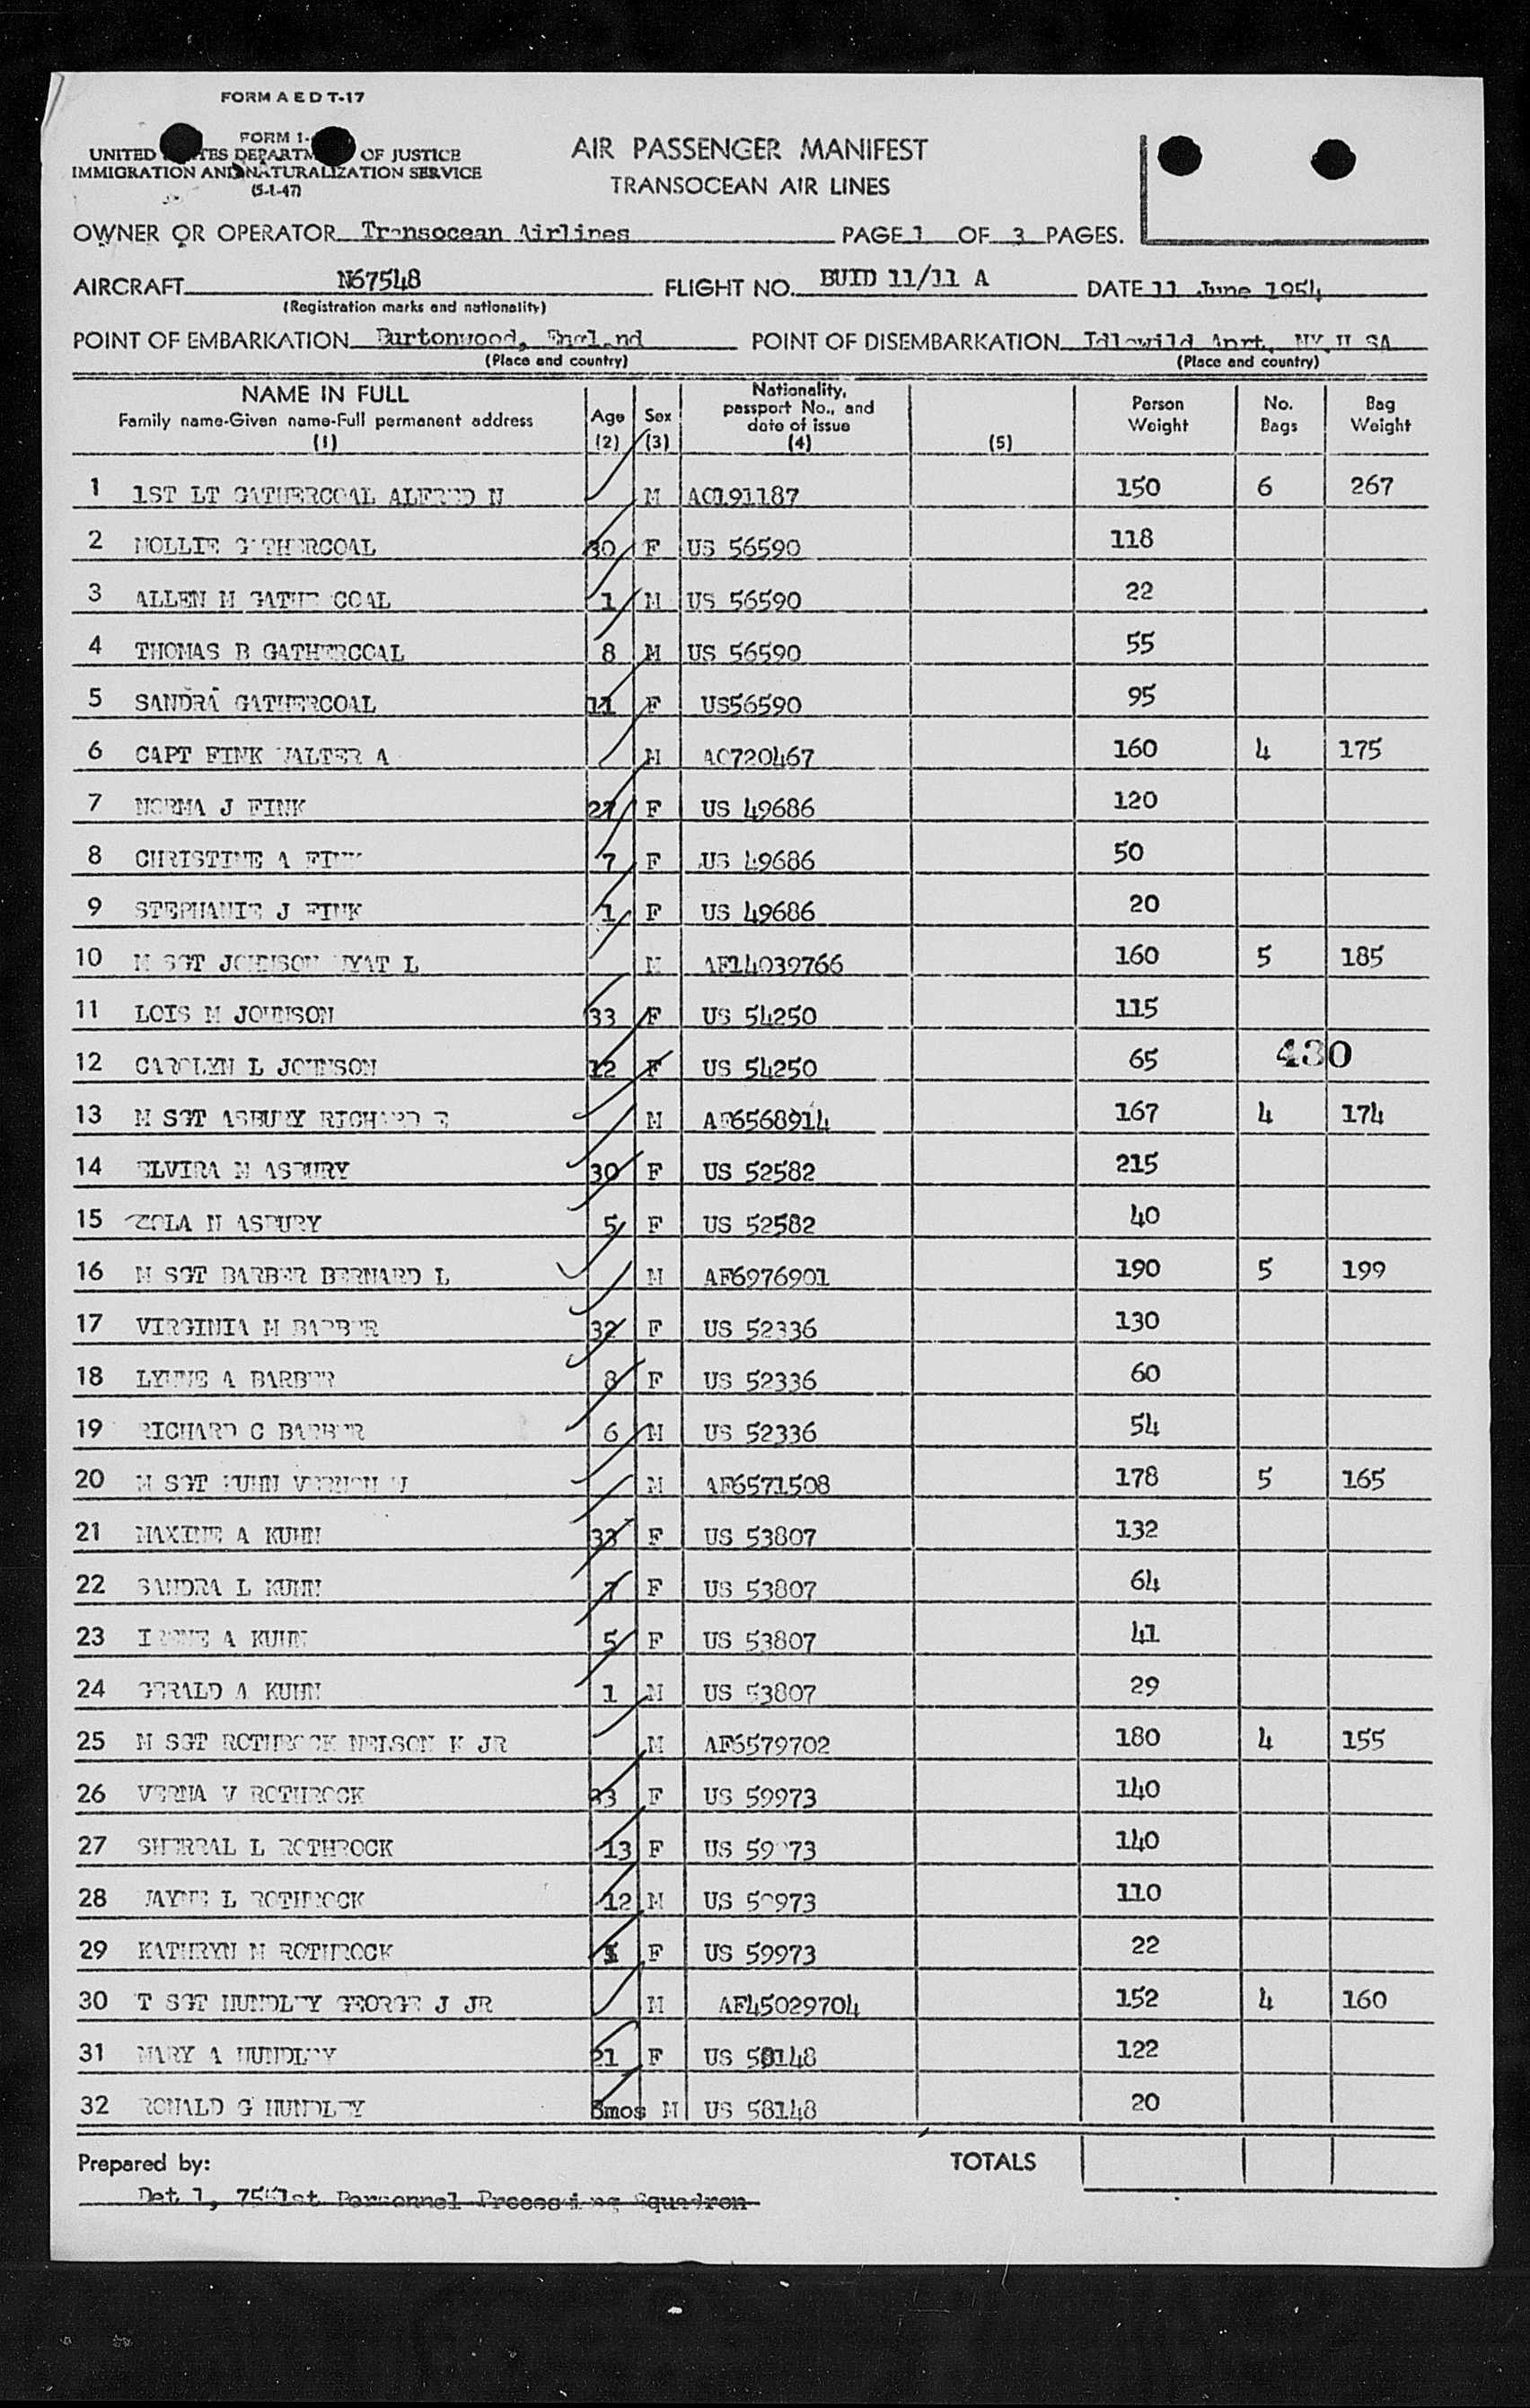 FORM A E D T-17
FORM I-
UNITED STATES DEPARTMENT OF JUSTICE
IMMIGRATION AND NATURALIZATION SERVICE
(5-1-47)
AIR PASSENGER MANIFEST
TRANSOCEAN AIR LINES
OWNER OR OPERATOR Transocean Airlines PAGE 1 OF 3 PAGES.
AIRCRAFT N67548 FLIGHT NO. BUID 11/11 A DATE 11 June 1954
(Registration marks and nationality)
POINT OF EMBARKATION Burtonwood, England POINT OF DISEMBARKATION Idlewild Aprt, NY U SA
(Place and country) (Place and country)
NAME IN FULL Family name-Given name-Full permanent address (1) Age (2) Sex (3) Nationality, passport No., and date of issue (4) (5) Person Weight No. Bags Bag Weight
1 1ST LT GATHERCOAL ALFRED N M AO191187 150 6 267
2 MOLLIE GATHERCOAL 30 F US 56590 118
3 ALLEN M GATHERCOAL 1 M US 56590 22
4 THOMAS B GATHERCOAL 8 M US 56590 55
5 SANDRA GATHERCOAL 11 F US56590 95
6 CAPT FINK WALTER A M AO720467 160 4 175
7 NORMA J FINK 27 F US 49686 120
8 CHRISTINE A FINK 7 F US 49686 50
9 STEPHANIE J FINK 1 F US 49686 20
10 M SGT JOHNSON WYAT L M AF14039766 160 5 185
11 LOIS M JOHNSON 33 F US 54250 115
12 CAROLYN L JOHNSON 12 F US 54250 65 430
13 M SGT ASBURY RICHARD E M AF6568914 167 4 174
14 ELVIRA M ASBURY 30 F US 52582 215
15 ZOLA N ASBURY 5 F US 52582 40
16 M SGT BARBER BERNARD L M AF6976901 190 5 199
17 VIRGINIA M BARBER 32 F US 52336 130
18 LYNNE A BARBER 8 F US 52336 60
19 RICHARD C BARBER 6 M US 52336 54
20 M SGT KUHN VERNON W M AF6571508 178 5 165
21 MAXINE A KUHN 33 F US 53807 132
22 SANDRA L KUHN 7 F US 53807 64
23 IRENE A KUHN 5 F US 53807 41
24 GERALD A KUHN 1 M US 53807 29
25 M SGT ROTHROCK NELSON K JR M AF6579702 180 4 155
26 VERNA V ROTHROCK 33 F US 59973 140
27 SHERRAL L ROTHROCK 13 F US 59973 140
28 WAYNE L ROTHROCK 12 M US 59973 110
29 KATHRYN M ROTHROCK F US 59973 22
30 T SGT HUNDLEY GEORGE J JR M AF45029704 152 4 160
31 MARY A HUNDLEY 21 F US 58148 122
32 RONALD G HUNDLEY 8mos M US 58148 20
Prepared by: TOTALS
Det 1, 7551st Personnel Processing Squadron